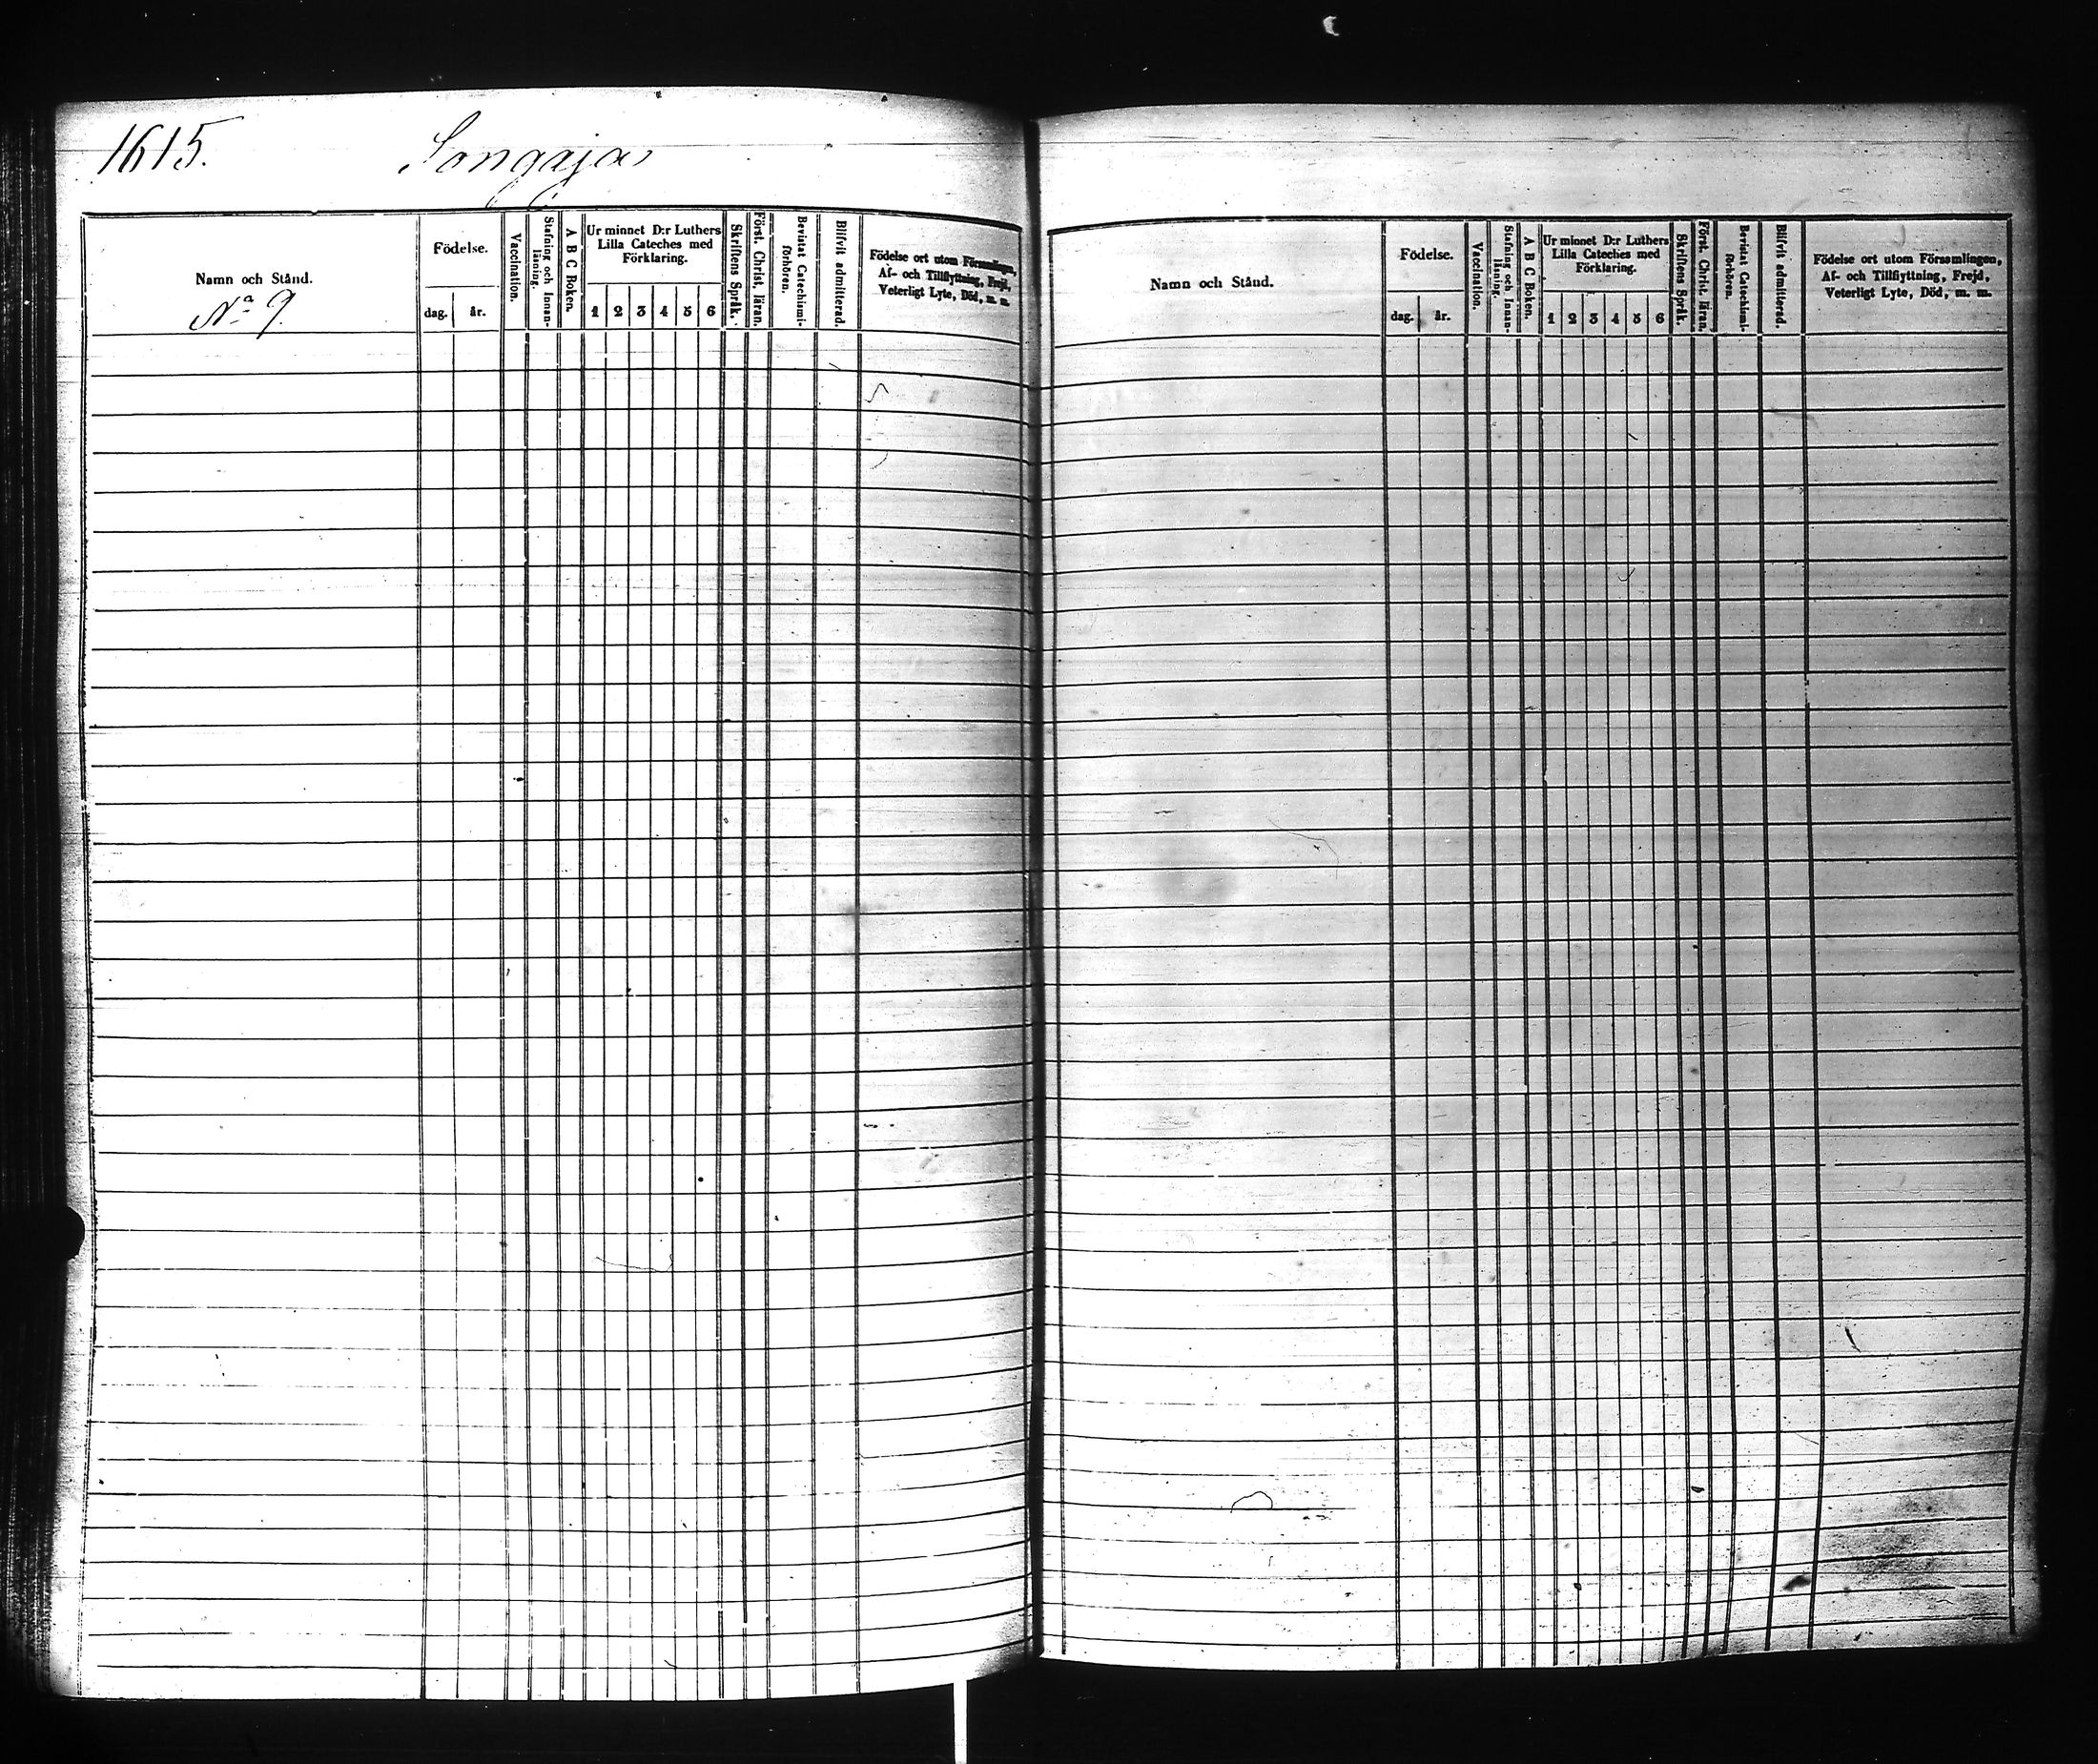 1615. Songaja
Namn och Stånd.
No 9.
Födelse.
dag. år.
Vaccination.
Stafning och Innan-
läsning.
A B C Boken.
Ur minnet D:r Luthers
Lilla Cateches med
Förklaring.
1 2 3 4 5 6
Skriftens Språk.
Först. Christ. läran.
Bevistat Catechismi-
förhören.
Blifvit admitterad.
Födelse ort utom Församlingen,
Af- och Tillflyttning, Frejd,
Veterligt Lyte, Död, m. m.
Namn och Stånd.
Födelse.
dag. år.
Vaccination.
Stafning och Innan-
läsning.
A B C Boken.
Ur minnet D:r Luthers
Lilla Cateches med
Förklaring.
1 2 3 4 5 6
Skriftens Språk.
Först. Christ. läran.
Bevistat Catechismi-
förhören.
Blifvit admitterad.
Födelse ort utom Församlingen,
Af- och Tillflyttning, Frejd,
Veterligt Lyte, Död, m. m.